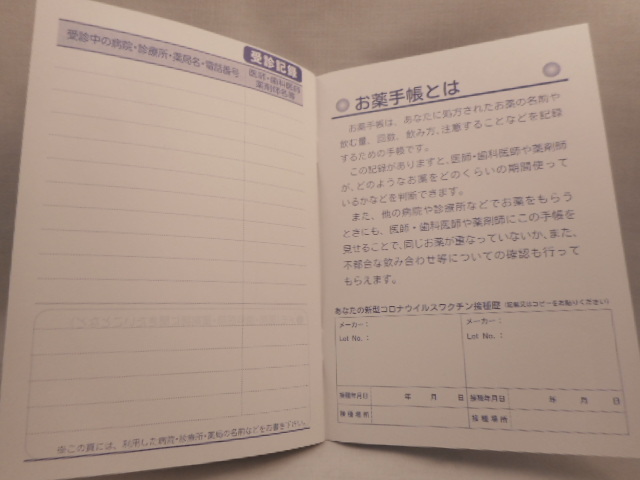 受診記録
受診中の病院・診療所・薬局名・電話番号
医師・歯科医師
薬剤師名等
※この頁には、利用した病院・診療所・薬局の名前などをお書き下さい。
お薬手帳とは
お薬手帳は、あなたに処方されたお薬の名前や
飲む量、回数、飲み方、注意することなどを記録
するための手帳です。
この記録がありますと、医師・歯科医師や薬剤師
が、どのようなお薬をどのくらいの期間使って
いるかなどを判断できます。
また、他の病院や診療所などでお薬をもらう
ときにも、医師・歯科医師や薬剤師にこの手帳を
見せることで、同じお薬が重なっていないか、また、
不都合な飲み合わせ等についての確認も行って
もらえます。
あなたの新型コロナウイルスワクチン接種歴 (記載又はコピーをお貼りください)
メーカー： メーカー：
Lot No.： Lot No.：
接種年月日 年 月 日 接種年月日 年 月 日
接種場所 接種場所